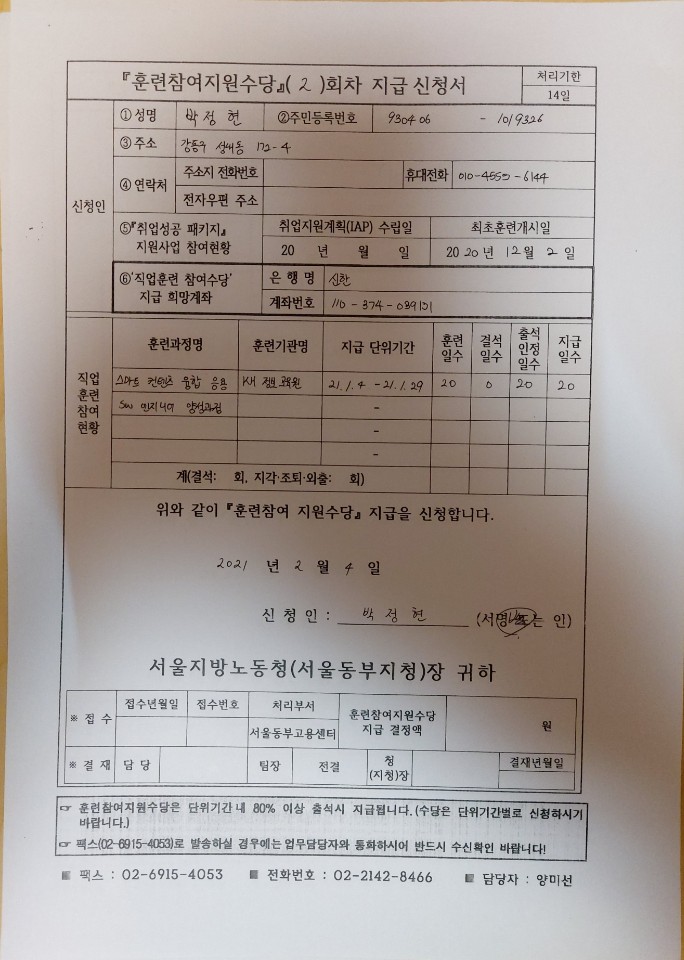 『훈련참여지원수당』( 2 )회차 지급 신청서
처리기한
14일
신청인
① 성명 박정현 ②주민등록번호 930406 - 1019326
③ 주소 강동구 성내동 172-4
④ 연락처 주소지 전화번호 휴대전화 010-4550-6144
전자우편 주소
⑤『취업성공 패키지』 지원사업 참여현황
취업지원계획(IAP) 수립일 최초훈련개시일
20 년 월 일 2020년 12월 2일
⑥'직업훈련 참여수당' 지급 희망계좌
은 행 명 신한
계좌번호 110-374-039131
직업 훈련 참여 현황
훈련과정명 훈련기관명 지급 단위기간 훈련 일수 결석 일수 출석 인정 일수 지급 일수
스마트 컨텐츠 융합 응용 KH 정보교육원 21.1.4 - 21.1.29 20 0 20 20
SW 엔지니어 양성과정 -
-
-
계(결석: 회, 지각·조퇴·외출: 회)
위와 같이 『훈련참여 지원수당』 지급을 신청합니다.
2021 년 2 월 4 일
신 청 인 : 박정현 (서명 또는 인)
서울지방노동청(서울동부지청)장 귀하
※ 접 수 접수년월일 접수번호 처리부서 훈련참여지원수당 지급 결정액 원
서울동부고용센터
※ 결 재 담 당 팀장 전결 청(지청)장 결재년월일
☞ 훈련참여지원수당은 단위기간내 80% 이상 출석시 지급됩니다. (수당은 단위기간별로 신청하시기
바랍니다.)
☞ 팩스(02-6915-4053)로 발송하실 경우에는 업무담당자와 통화하시어 반드시 수신확인 바랍니다!
■ 팩스 : 02-6915-4053 ■ 전화번호 : 02-2142-8466 ■ 담당자 : 양미선